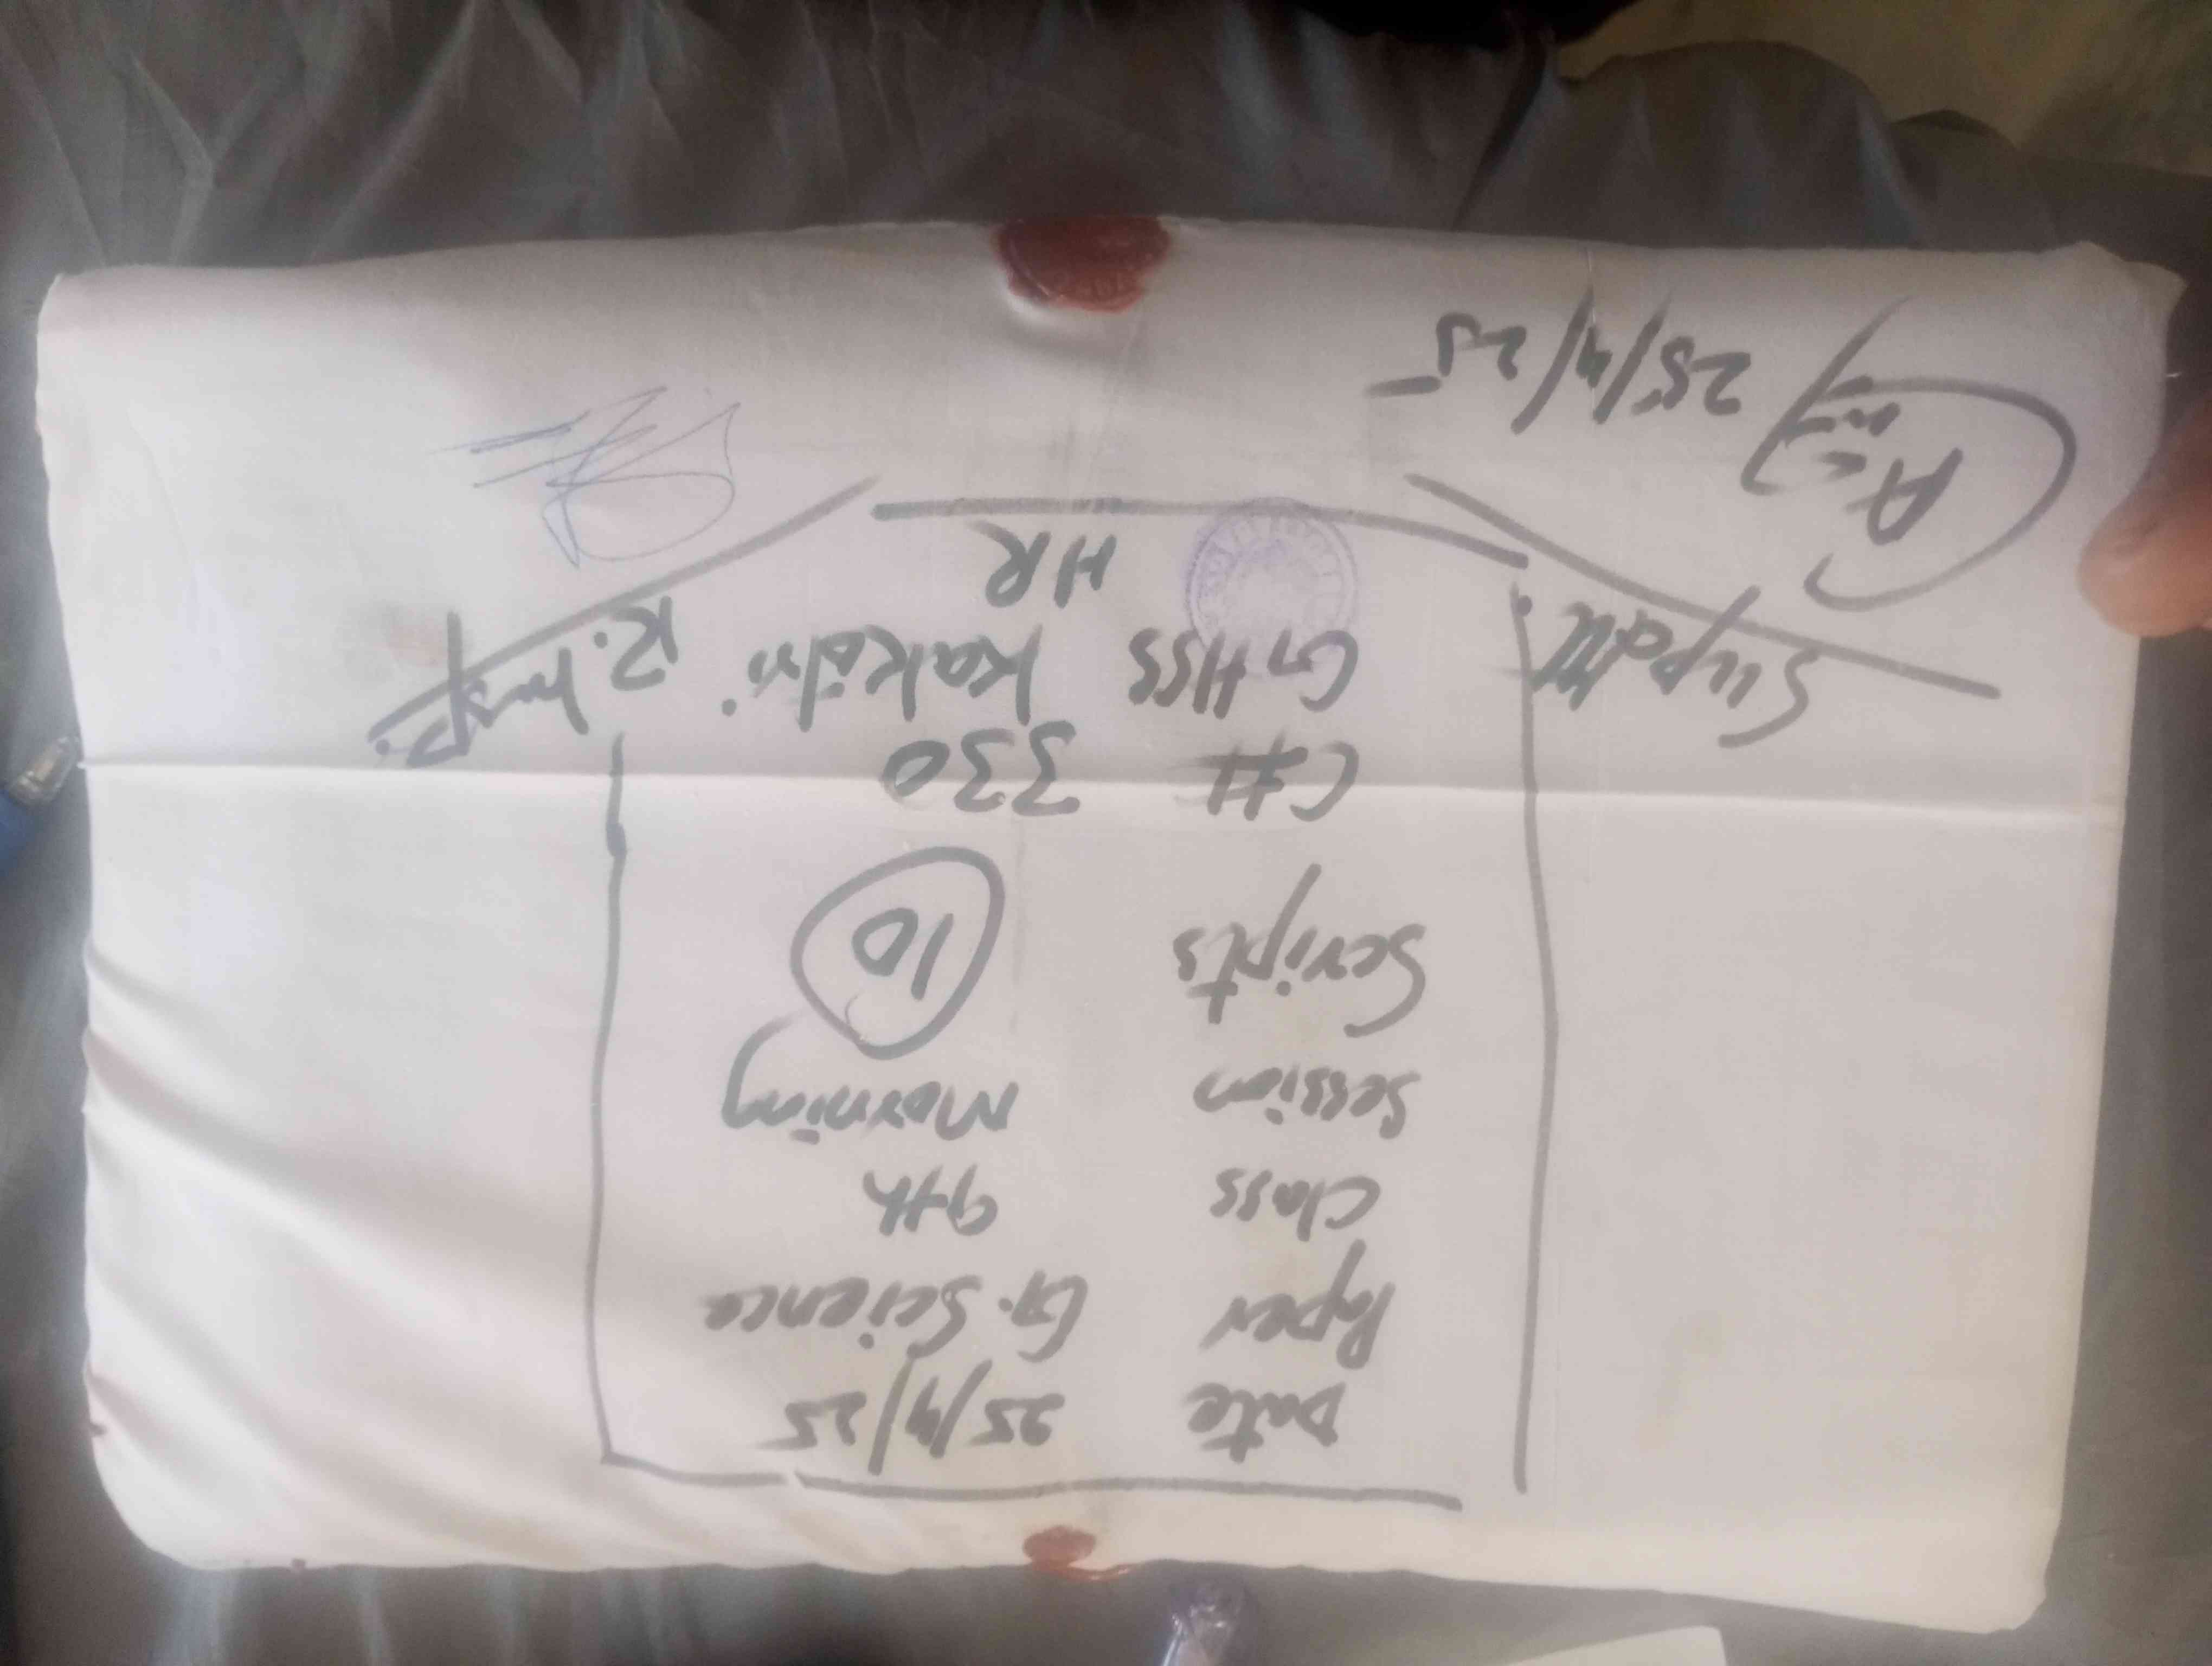 Date 25/4/25
Paper G. Science
Class 9th
Session Morning
Scripts 10
C# 330
GHSS Kakotri
HR
Supdtt
R. Insp.
25/4/25